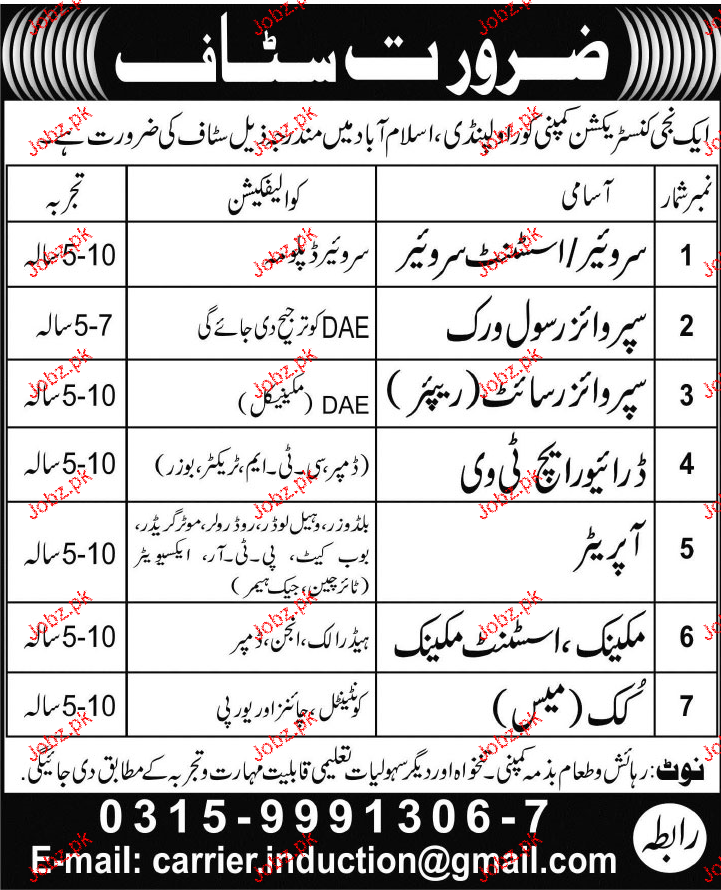 ضرورت سٹاف
ایک نجی کنسٹریکشن کمپنی کو راولپنڈی، اسلام آباد میں مندرجہ ذیل سٹاف کی ضرورت ہے۔
نمبر شمار آسامی کوالیفکیشن تجربہ
1 سروئیر/اسسٹنٹ سروئیر سروئیر ڈپلومہ 5-10 سالہ
2 سپروائزر سول ورک DAE کو ترجیح دی جائے گی 5-7 سالہ
3 سپروائزر سائٹ (ریپئر) DAE (مکینیکل) 5-10 سالہ
4 ڈرائیور ایچ ٹی وی (ڈمپر، سی۔ٹی۔ایم، ٹریکٹر، بوزر) 5-10 سالہ
بلڈوزر، وہیل لوڈر، روڈ رولر، موٹر گریڈر،
5 آپریٹر بوب کیٹ، پی۔ٹی۔آر، ایکسیویٹر 5-10 سالہ
(ٹائر چین، جیک ہیمر)
6 مکینک، اسسٹنٹ مکینک ہیڈرالک، انجن، ڈمپر 5-10 سالہ
7 کُک (میس) کونٹینٹل، چائنز اور یورپی 5-10 سالہ
نوٹ: رہائش و طعام بذمہ کمپنی۔ تنخواہ اور دیگر سہولیات تعلیمی قابلیت مہارت و تجربہ کے مطابق دی جائیگی۔
رابطہ 0315-9991306-7
E-mail: carrier.induction@gmail.com
Jobz.pk